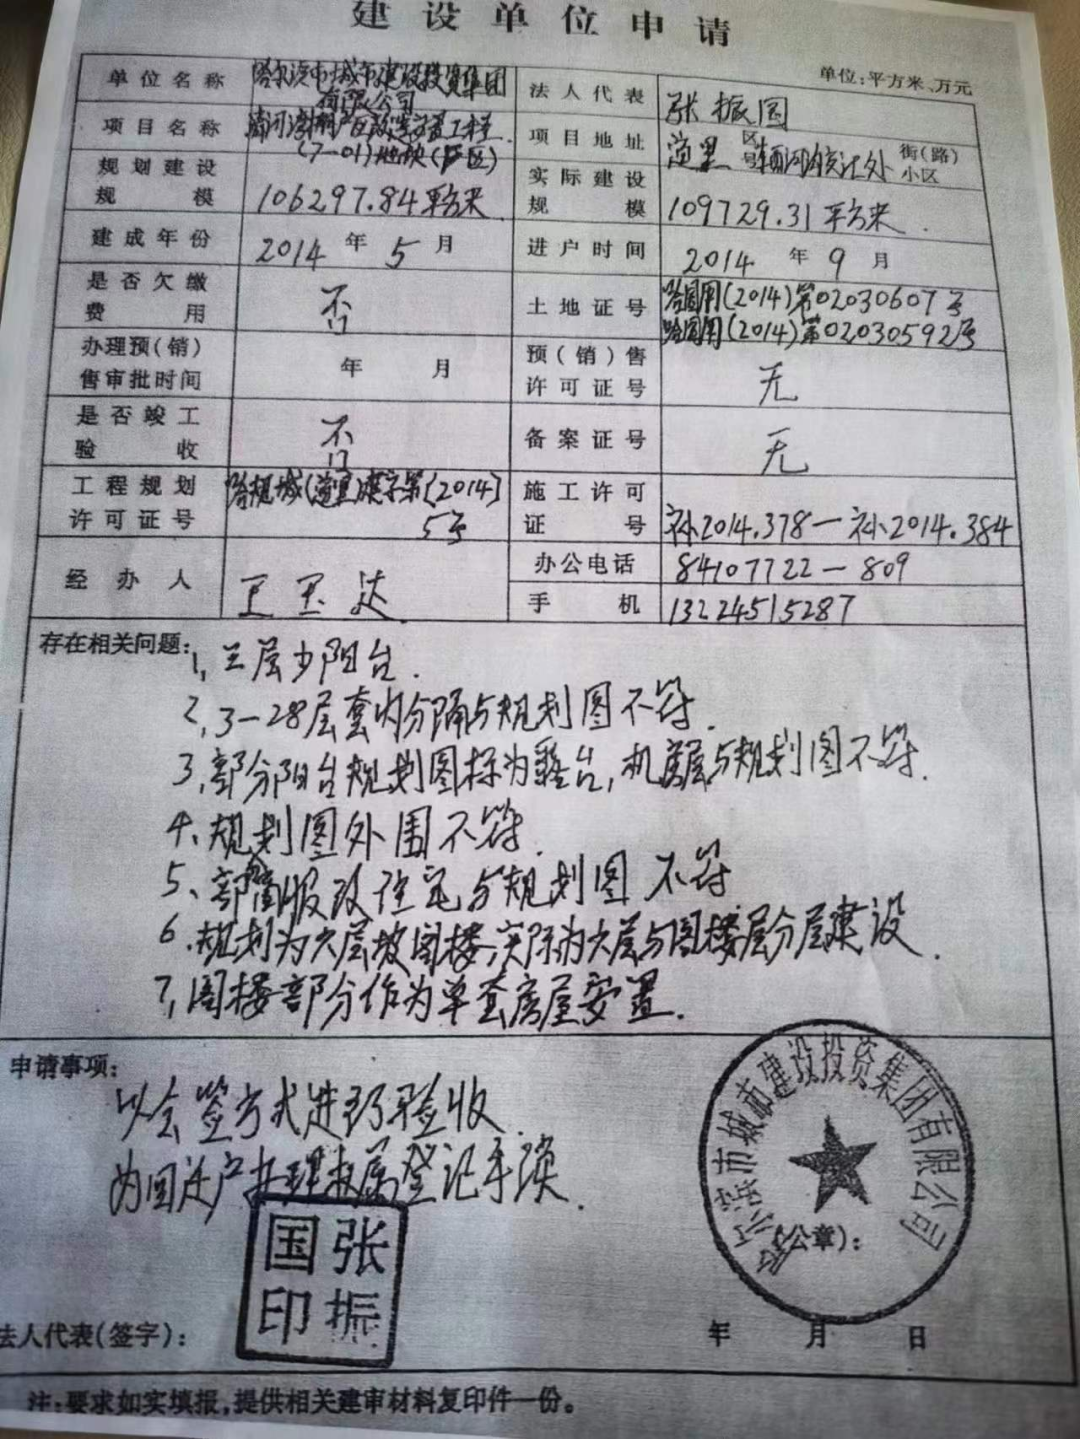 建设单位申请
单位:平方米、万元
单位名称 哈尔滨市城市建设投资集团有限公司 法人代表 张振国
项目名称 棚户区改造安置工程(7-01)地块(E区) 项目地址 道里区 街(路)号 小区
规划建设规模 106297.84平方米 实际建设规模 109729.31平方米.
建成年份 2014年5月 进户时间 2014年9月
是否欠缴费用 否 土地证号 哈国用(2014)第02030607号
哈国用(2014)第02030592号
办理预(销)售审批时间 年 月 预(销)售许可证号 无
是否竣工验收 否 备案证号 无
工程规划许可证号 哈规城(道里)建字第[2014]5号 施工许可证号 补2014.378—补2014.384
经办人 王玉达 办公电话 84107722-809
手机 13224515287
存在相关问题:
1,三层少阳台.
2,3-28层套内分隔与规划图不符.
3,部分阳台规划图标为露台,机房层与规划图不符.
4、规划图外围不符.
5、部分商服改住宅与规划图不符
6.规划为六层坡阁楼,实际为六层与阁楼层分层建设.
7,阁楼部分作为单套房屋安置.
申请事项:
以会签方式进行验收
为回迁户办理权属登记手续.
哈尔滨市城市建设投资集团有限公司
(公章):
张振国印
法人代表(签字):
年 月 日
注:要求如实填报,提供相关建审材料复印件一份。